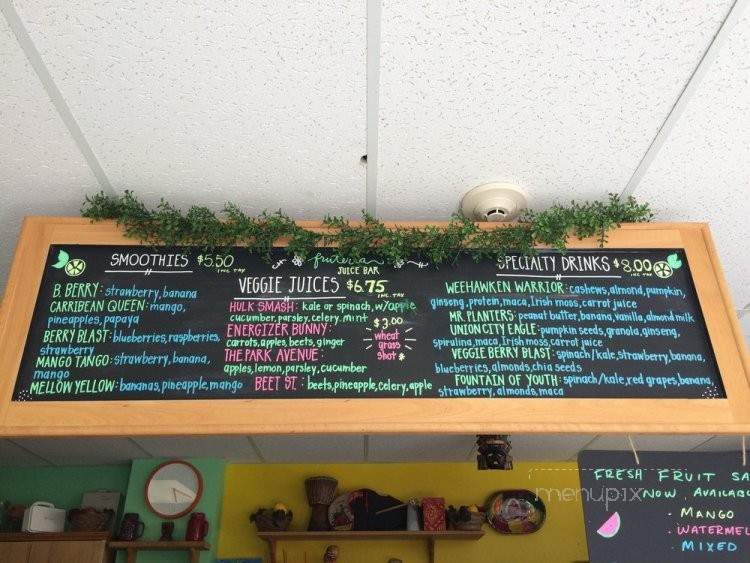 SMOOTHIES $5.50
INC. TAX
B. BERRY: strawberry, banana
CARRIBEAN QUEEN: mango,
pineapples, papaya
BERRY BLAST: blueberries, raspberries,
strawberry
MANGO TANGO: strawberry, banana,
mango
MELLOW YELLOW: bananas, pineapple, mango
JUICE BAR
VEGGIE JUICES $6.75
INC. TAX
HULK SMASH: kale or spinach, w/apple
cucumber, parsley, celery, mint
ENERGIZER BUNNY:
carrots, apples, beets, ginger
THE PARK AVENUE:
apples, lemon, parsley, cucumber
BEET ST: beets, pineapple, celery, apple
$3.00
wheat
grass
shot *
SPECIALTY DRINKS $8.00
INC. TAX
WEEHAWKEN WARRIOR: cashews, almond, pumpkin,
ginseng, protein, maca, Irish moss, carrot juice
MR PLANTERS: peanut butter, banana, vanilla, almond milk
UNION CITY EAGLE: pumpkin seeds, granola, ginseng,
spirulina, maca, Irish moss, carrot juice
VEGGIE BERRY BLAST: spinach/kale, strawberry, banana,
blueberries, almonds, chia seeds
FOUNTAIN OF YOUTH: spinach/kale, red grapes, banana,
strawberry, almonds, maca
menupix
FRESH FRUIT SA
NOW AVAILAB
- MANGO
- WATERMEL
- MIXED